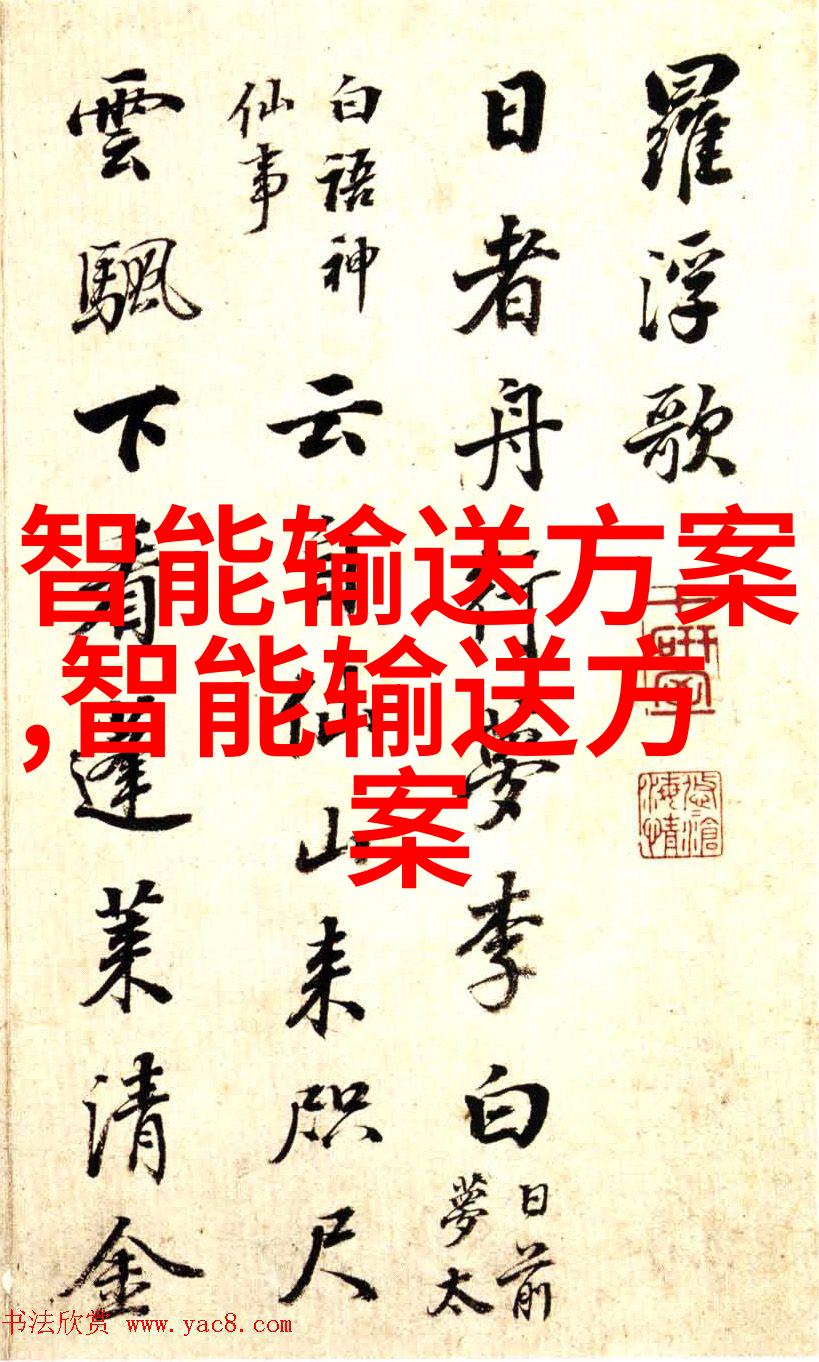 羅浮歌
日者舟行夢李白
日前
夢太
白語神
仙事
云仙山来咫尺
雲颿下看蓬莱清金
智能输送方案
,智能输送方
案
书法欣赏 www.yac8.com